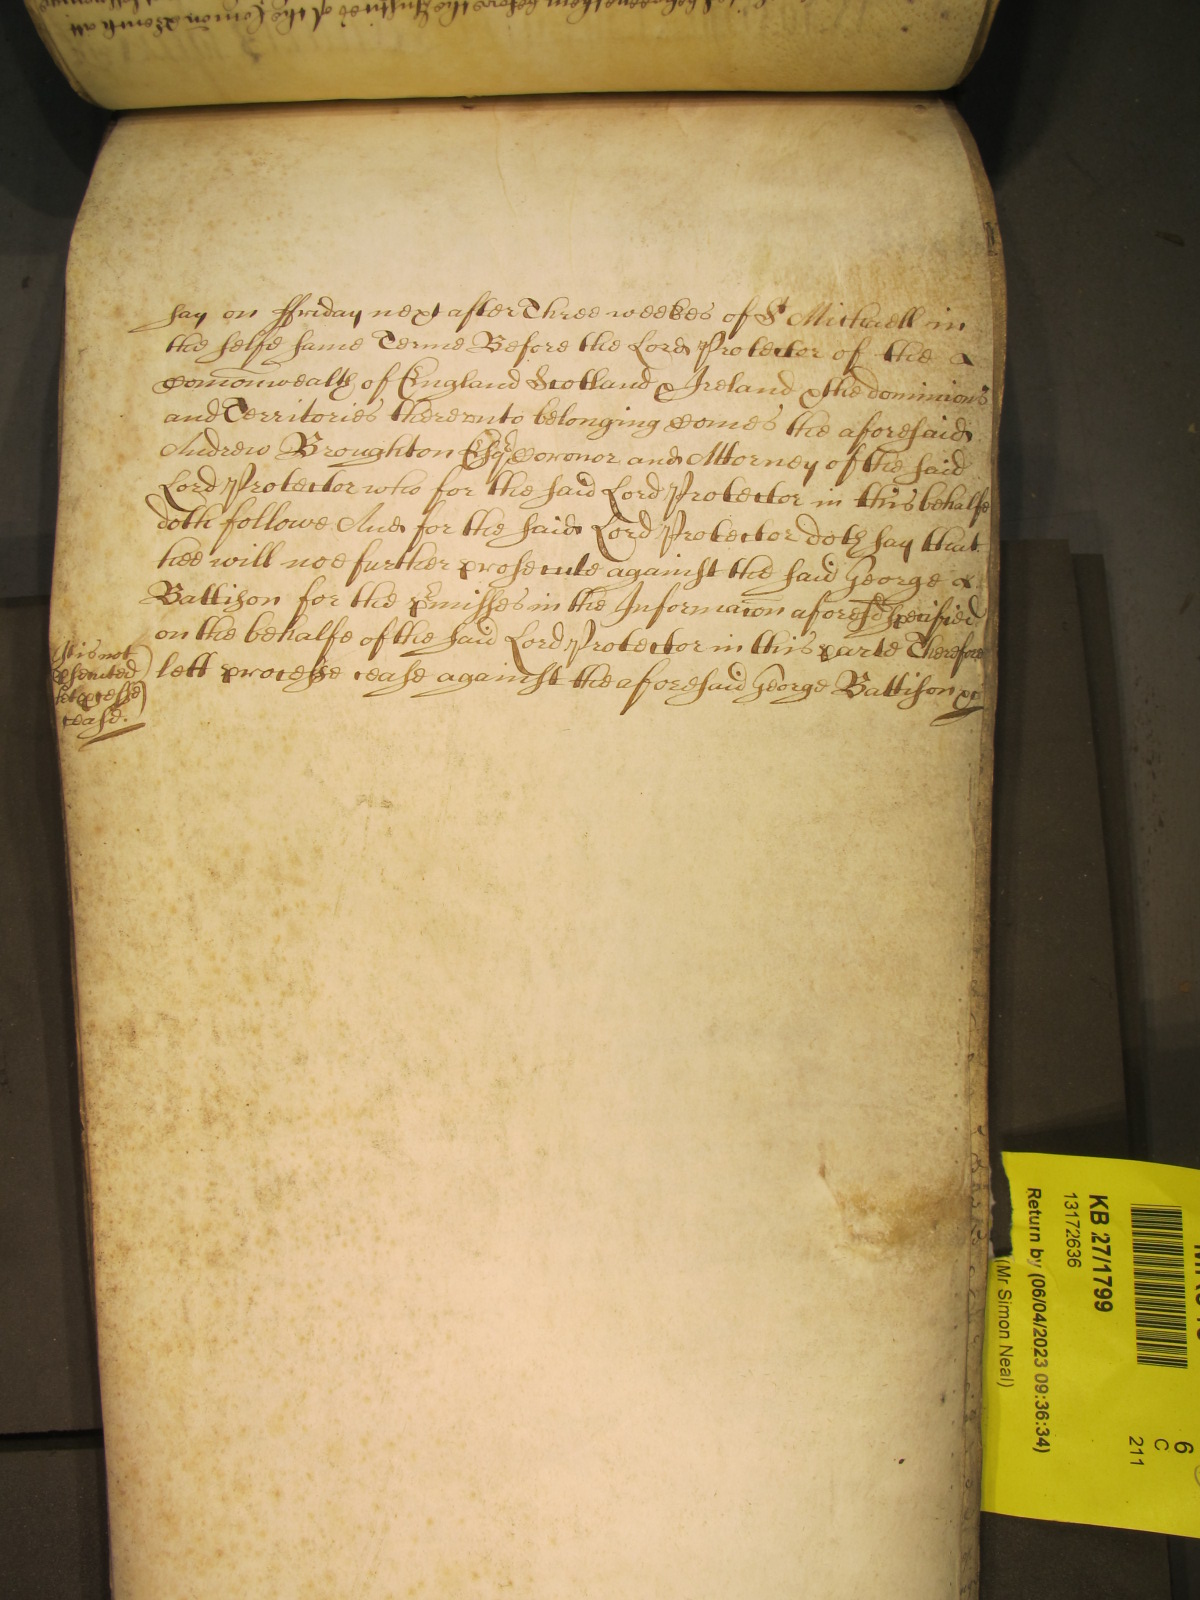 say on ffriday next after Three weekes of St Michaell in
the selfe same Terme Before the Lord Protector of the
Comonwealth of England Scotland & Ireland & the dominions
and Territories thereunto belonging comes the aforesaid
Andrew Broughton Esqr Coronor and Attorney of the said
Lord Protector who for the said Lord Protector in this behalfe
doth followe And for the said Lord Protector doth say that
hee will not further prosecute against the said George
Battison for the pmisses in the Informacon aforesd specified
on the behalfe of the said Lord Protector in this parte Therefore
lett processe cease against the aforesaid George Battison &c
is not
lett pcesse
cease.
KB 27/1799
13172636
Return by (06/04/2023 09:36:34)
(Mr Simon Neal)
6
C
211